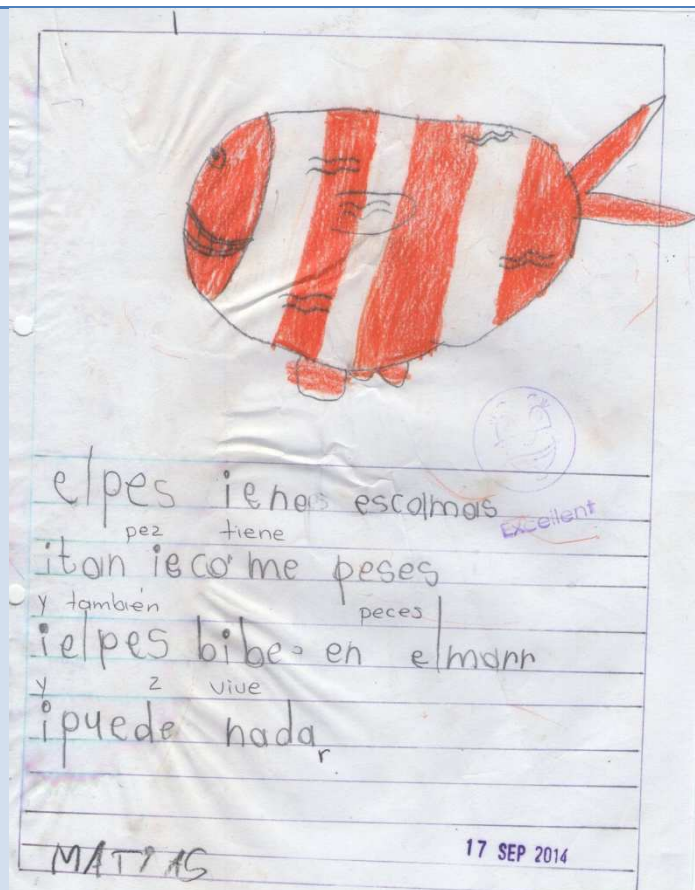 elpes iene escalmas
Excellent
pez tiene
itan ieco me peses
y también peces
ielpes bibe en elmarr
y z vive
ipuede nada
r
MATIAS
17 SEP 2014